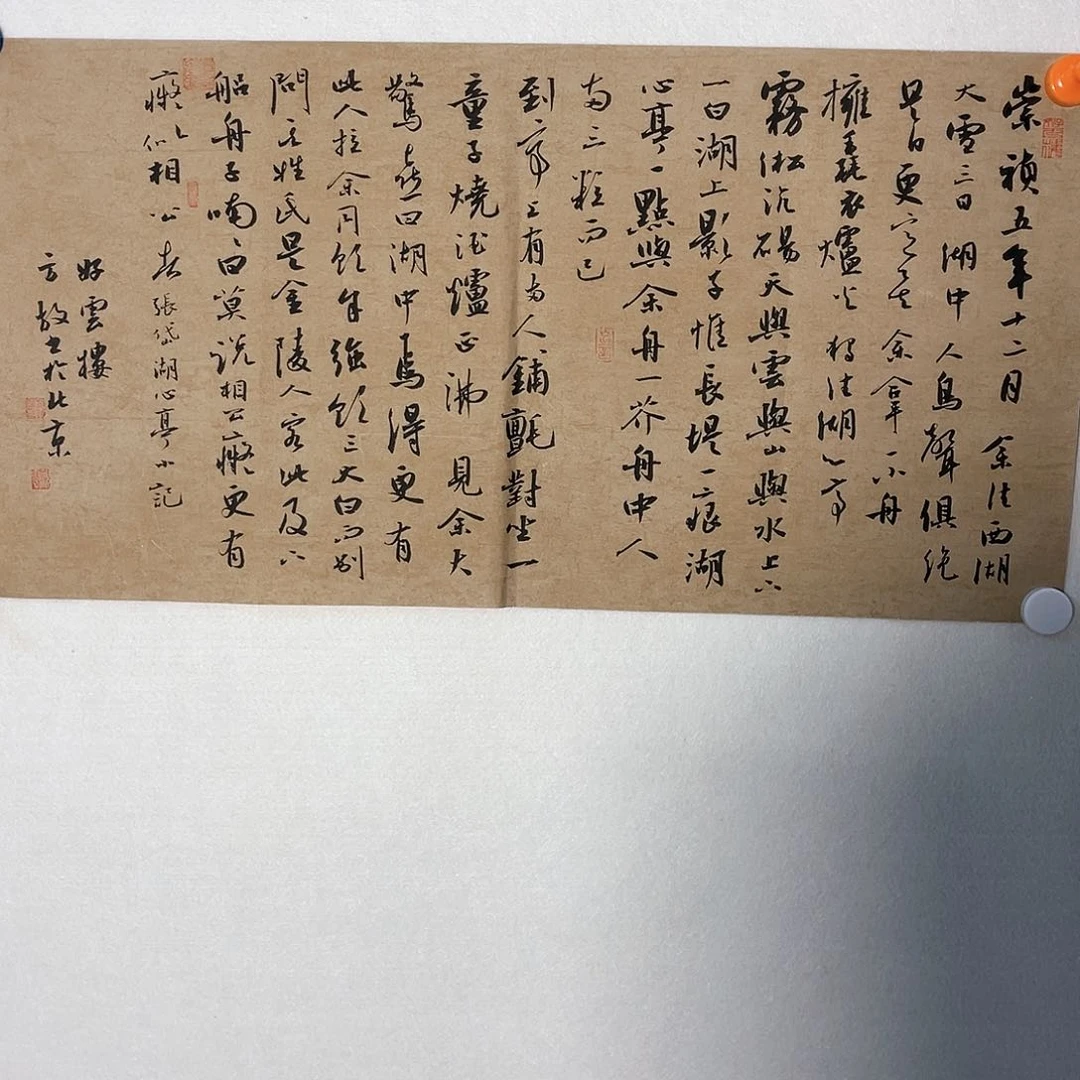 崇禎五年十二月余住西湖
大雪三日湖中人鳥聲俱絕
是日更定矣余拏一小舟
擁毳衣爐火獨往湖心亭
霧淞沆碭天與雲與山與水上下
一白湖上影子惟長堤一痕湖
心亭一點與余舟一芥舟中人
兩三粒而已
到亭上有兩人鋪氈對坐一
童子燒酒爐正沸見余大
驚喜曰湖中焉得更有
此人拉余同飲余強飲三大白而別
問其姓氏是金陵人客此及下
船舟子喃喃曰莫說相公癡更有
癡似相公者張岱湖心亭小記
好雲樓
方放書於北京